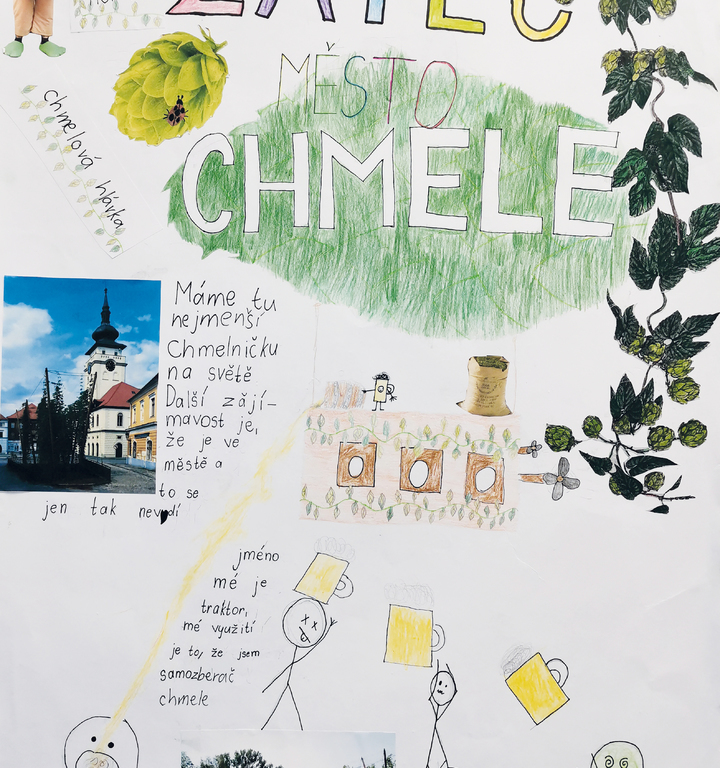 ŽATEC
MĚSTO
CHMELE
chmelová hlávka
Máme tu
nejmenší
Chmelničku
na světě
Další zají-
mavost je,
že je ve
městě a
to se
jen tak nevidí
jméno
mé je
traktor,
mé využití
je to, že jsem
samozběrač
chmele